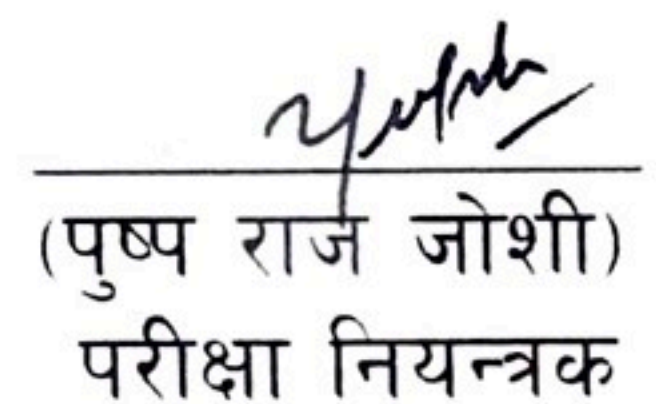 (पुष्प राज जोशी)
परीक्षा नियन्त्रक